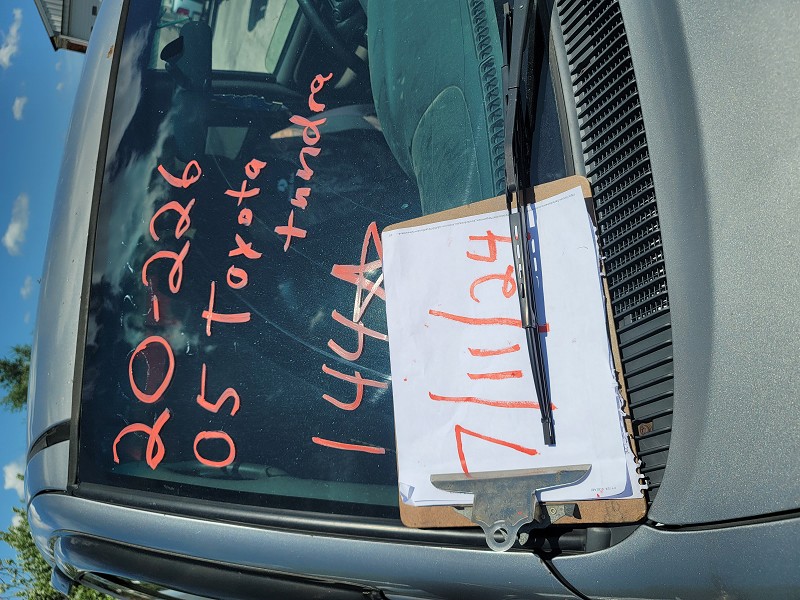 20-226
05 Toyota
tundra
144A
7/11/24